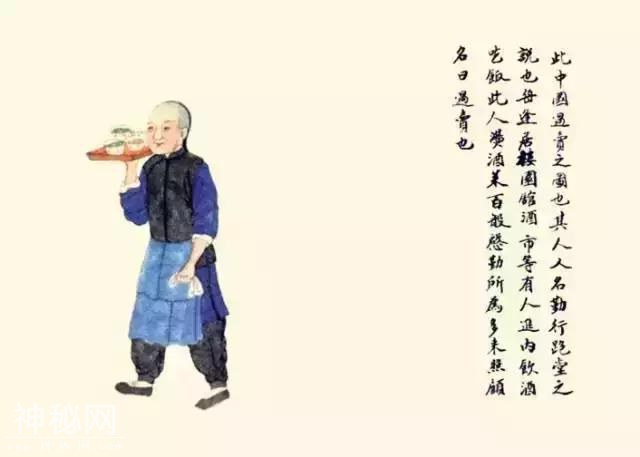 此中國過賣之圖也其人人名勤行跑堂之
說也每逢居樓園館酒市等有人進內飲酒
吃飯此人燙酒菜百般慇勤所為多來照顧
名曰過賣也
神秘网